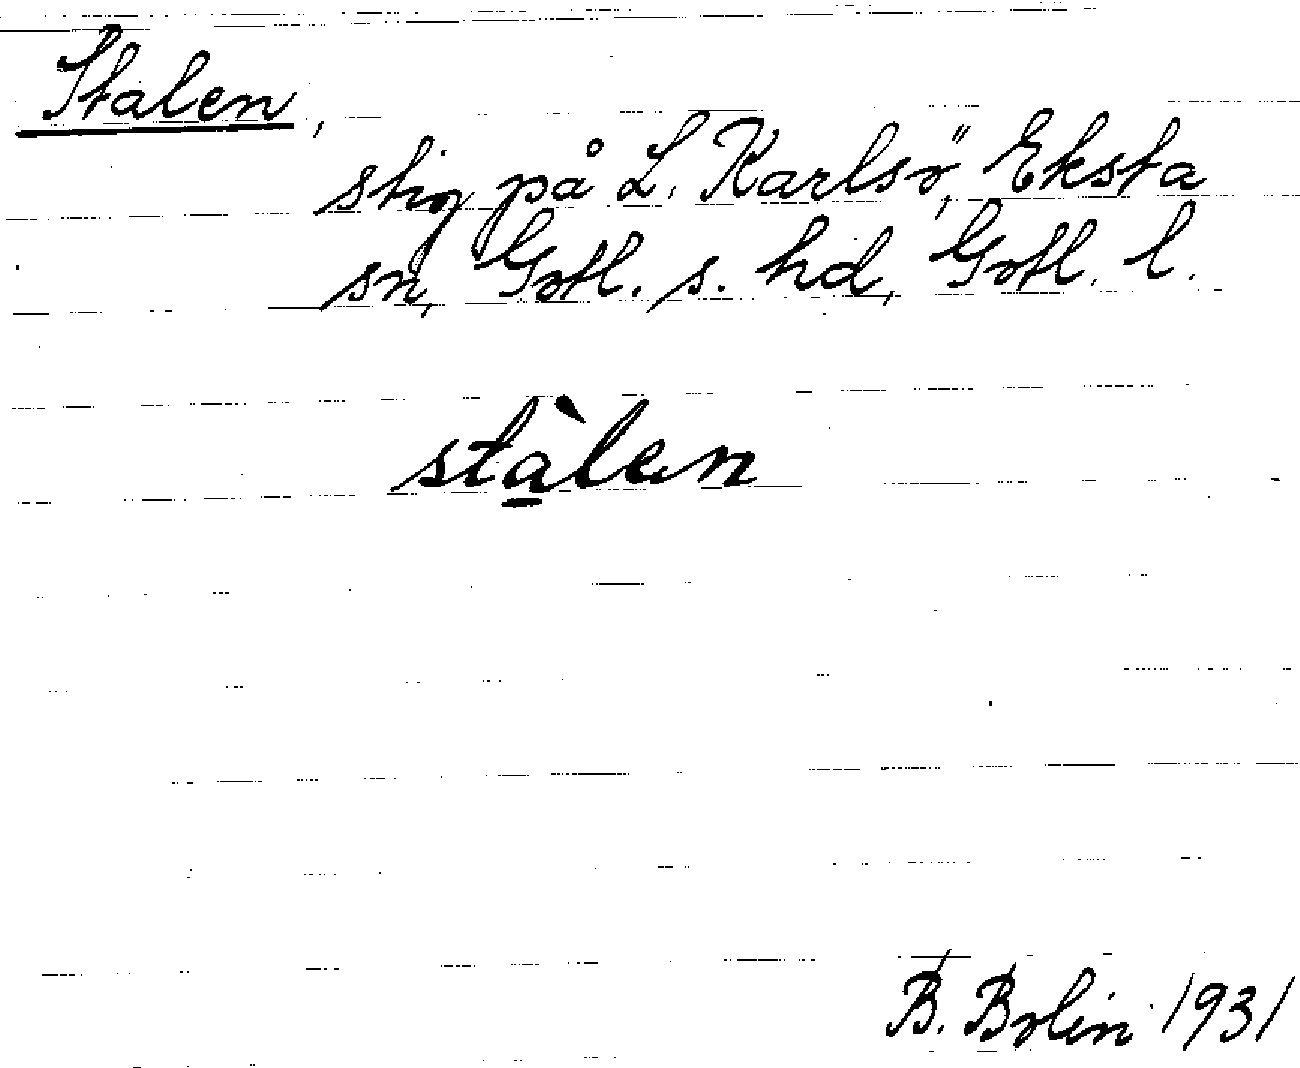 Stalen,
stig på L. Karlsö, Eksta
sn, Gotl. s. hd, Gotl. l.
stàlen
B. Bolin 1931